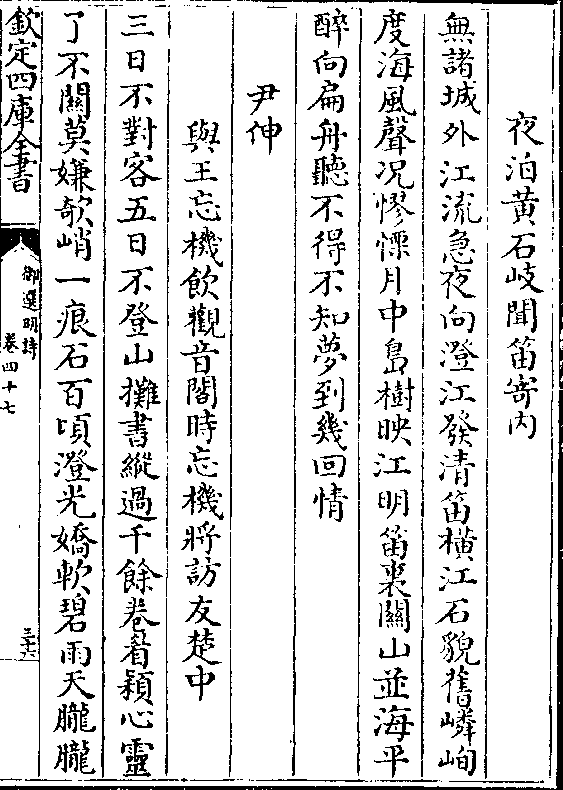 夜泊黃石岐聞笛寄内
無諸城外江流急夜向澄江發清笛横江石貌舊嶙峋
度海風聲况憀慄月中島樹映江明笛裏關山並海平
醉向扁舟聽不得不知夢到幾回情
尹伸
與王忘機飲觀音閣時忘機將訪友楚中
三日不對客五日不登山攤書縱過千餘卷着穎心靈
了不關莫嫌欹峭一痕石百頃澄光嬌軟碧雨天朧朧
欽定四庫全書
御選明詩
卷四十七
三十六